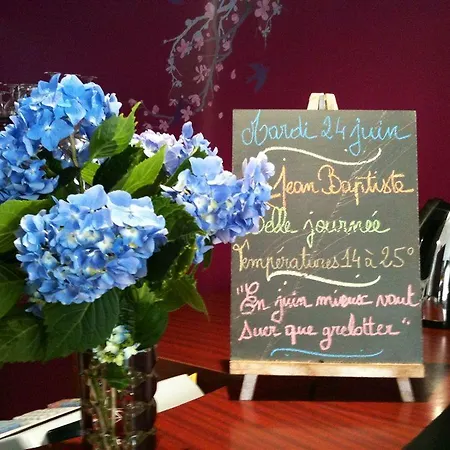 Mardi 24 juin
St Jean Baptiste
Belle journée
Températures 14 à 25°
"En juin mieux vaut
suer que grelotter"